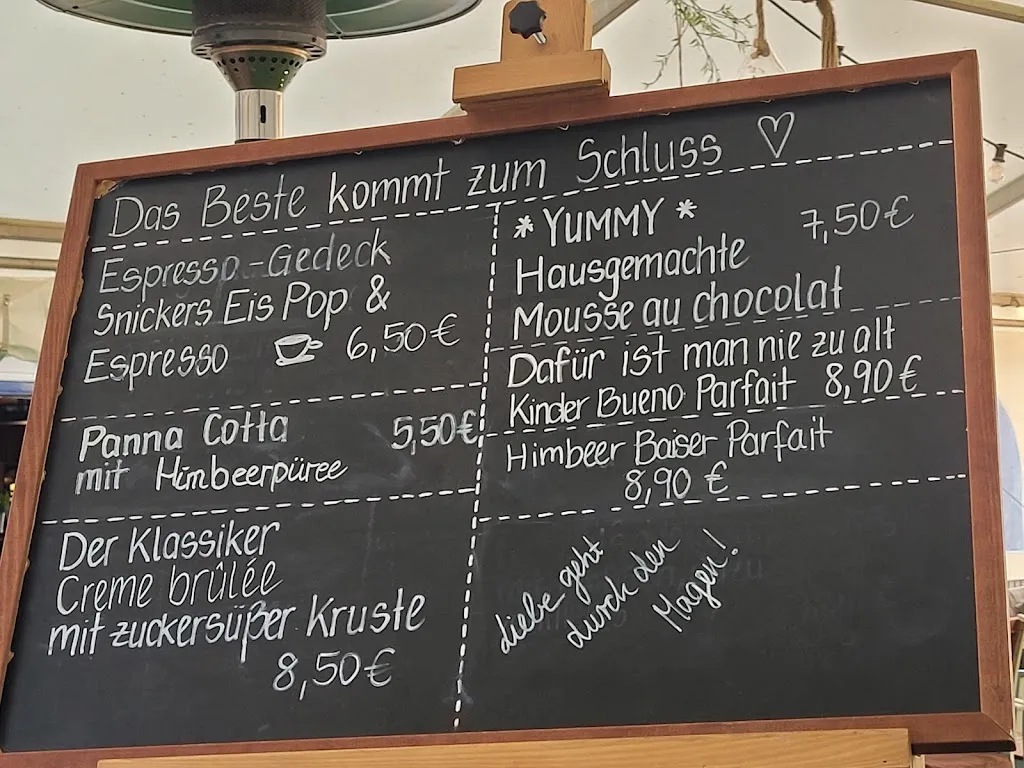 Das Beste kommt zum Schluss ♡
Espresso-Gedeck
Snickers Eis Pop &
Espresso 6,50€
Panna Cotta 5,50€
mit Himbeerpüree
Der Klassiker
Creme brûlée
mit zuckersüßer Kruste
8,50€
* YUMMY * 7,50€
Hausgemachte
Mousse au chocolat
Dafür ist man nie zu alt
Kinder Bueno Parfait 8,90€
Himbeer Baiser Parfait
8,90 €
Liebe geht
durch den
Magen!